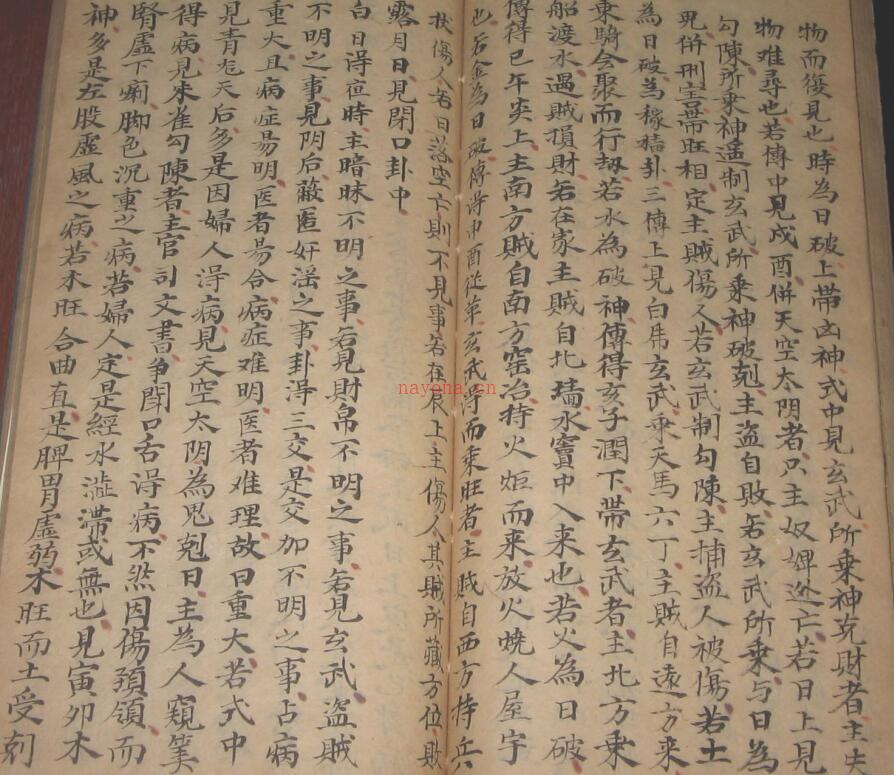 物而復見也時為日破上帶凶神式中見玄武所乗神克財者主失
物难尋也若傳中見戍酉併天空太阴者只主奴婢迯亡若日上見
勾陳所乗神遥制玄武所乗神破剋主盗自敗若玄武所乗与日為
鬼併刑空無帶旺相定主賊傷人若玄武制勾陳主捕盗人被傷若土
為日破為稼穑卦三傳上見白虎玄武乘天馬六丁主賊自遠方来
乘騎会聚而行刼若水為破神傳得亥子潤下帶玄武者主北方乗
船渡水遇賊損財若在家主賊自北墻水竇中入来也若火為日破
傳得巳午炎上主南方賊自南方窑冶持火炬而来放火燒人屋宇
也若金為日破傳得申酉従革玄武得而乘旺者主賊自西方持兵
扙傷人若日落空亡則不見事若在辰上主傷人其賊所藏方位敗
露月日見閉口卦中
白日得夜時主暗昧不明之事若見財帛不明之事若見玄武盗賊
不明之事見阴后蔽匿奸滛之事卦淂三交是交加不明之事占病
重大且病症昜明医者昜合病症难明医者难理故曰重大若式中
見青龙天后多是因婦人淂病見天空太阴為鬼剋日主為人窺筭
得病見朱雀勾陳者主官司文書争閗口舌淂病不然因傷頚領而
腎虛下痢脚色沉重之病若婦人定是經水澁滯或無也見寅夘木
神多是左股虛風之病若木旺合曲直是脾胃虛弱木旺而土受剋
nayona.cn